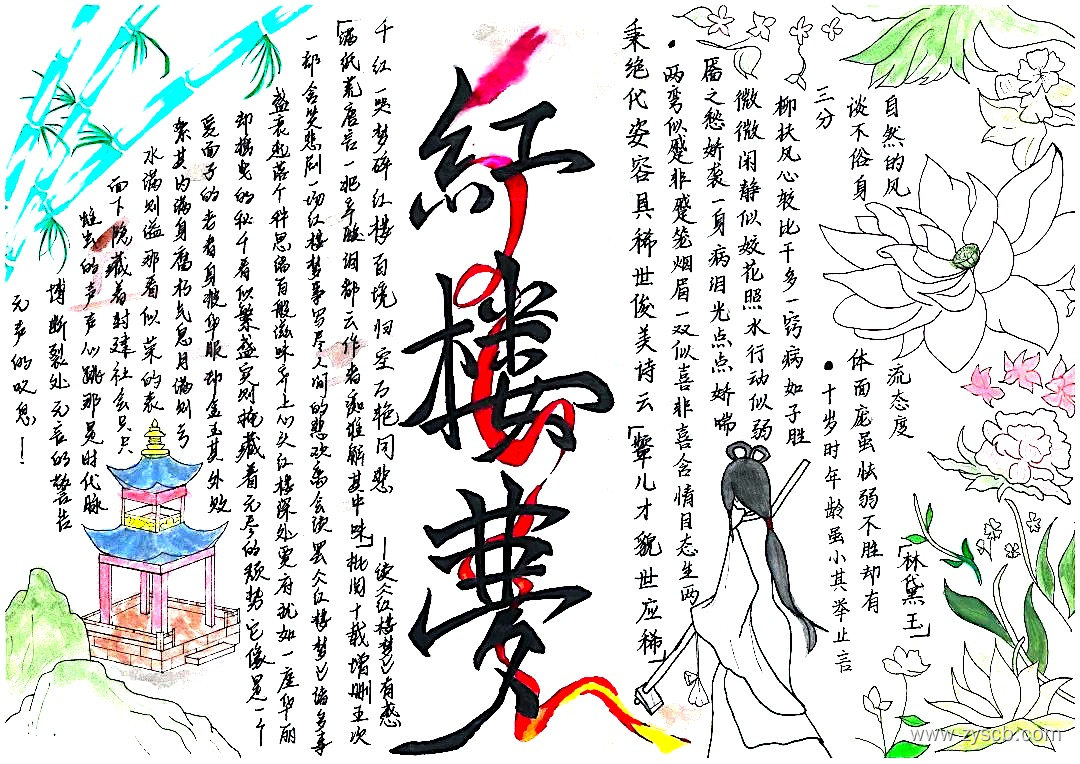 紅
楼
夢
「林黛玉」
• 十岁时年龄虽小其举止言
谈不俗身
体面庞虽怯弱不胜却有
自然的风
流态度
秉绝代姿容具稀世俊美诗云「颦儿才貌世应稀」
• 两弯似蹙非蹙笼烟眉一双似喜非喜含情目态生两
靥之愁娇袭一身病泪光点点娇喘
微微闲静似姣花照水行动似弱
柳扶风心较比干多一窍病如子胜
三分
千红一哭梦碎红楼百境归空万艳同悲
——读《红楼梦》有感
「满纸荒唐言一把辛酸泪都云作者痴谁解其中味」批阅十载增删五次
一部含笑悲剧一场红楼梦事写尽人间的悲欢离合读罢《红楼梦》已诸多事
盛衰起落个种思绪百般滋味上心头红楼深处更有犹如一座华丽
却摇曳的秋千看似繁盛实则掩藏着无尽的颓势它像是一个
爱面子的老者身披华服却金玉其外败
絮其内满身腐朽气息月满则亏
水满则溢那看似荣的表
面下隐藏着封建社会只只
蛀虫的声声心跳那是时代脉
博断裂处无言的警告
无声的叹息！
www.zyscb.com